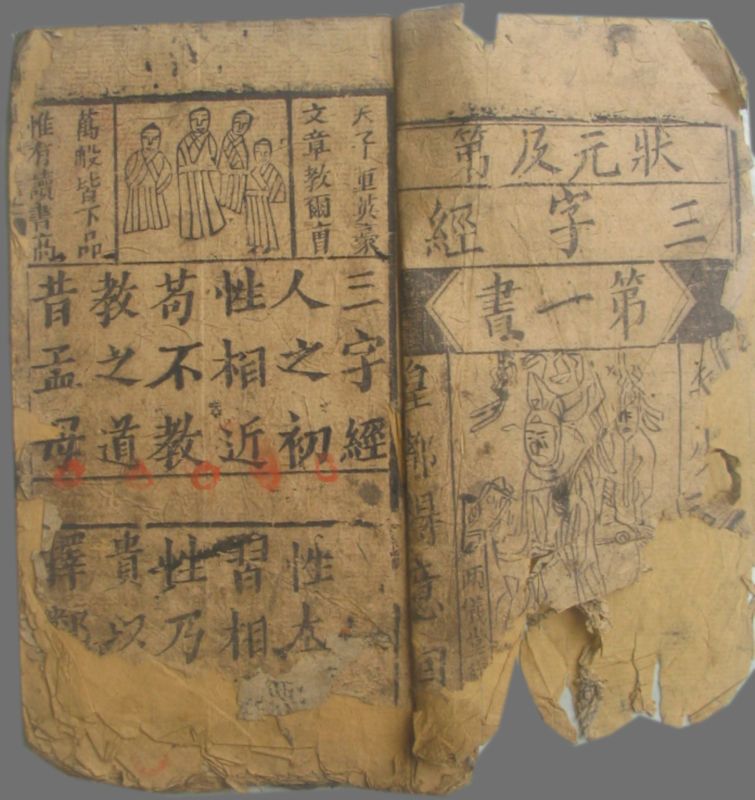 狀元及第
三字經
第一書
皇都得意回
兩儀堂
天子重英豪
文章教爾曹
萬般皆下品
惟有讀書高
三字經
人之初
性相近
苟不教
教之道
昔孟母
性本
習相
性乃
貴以
擇鄰